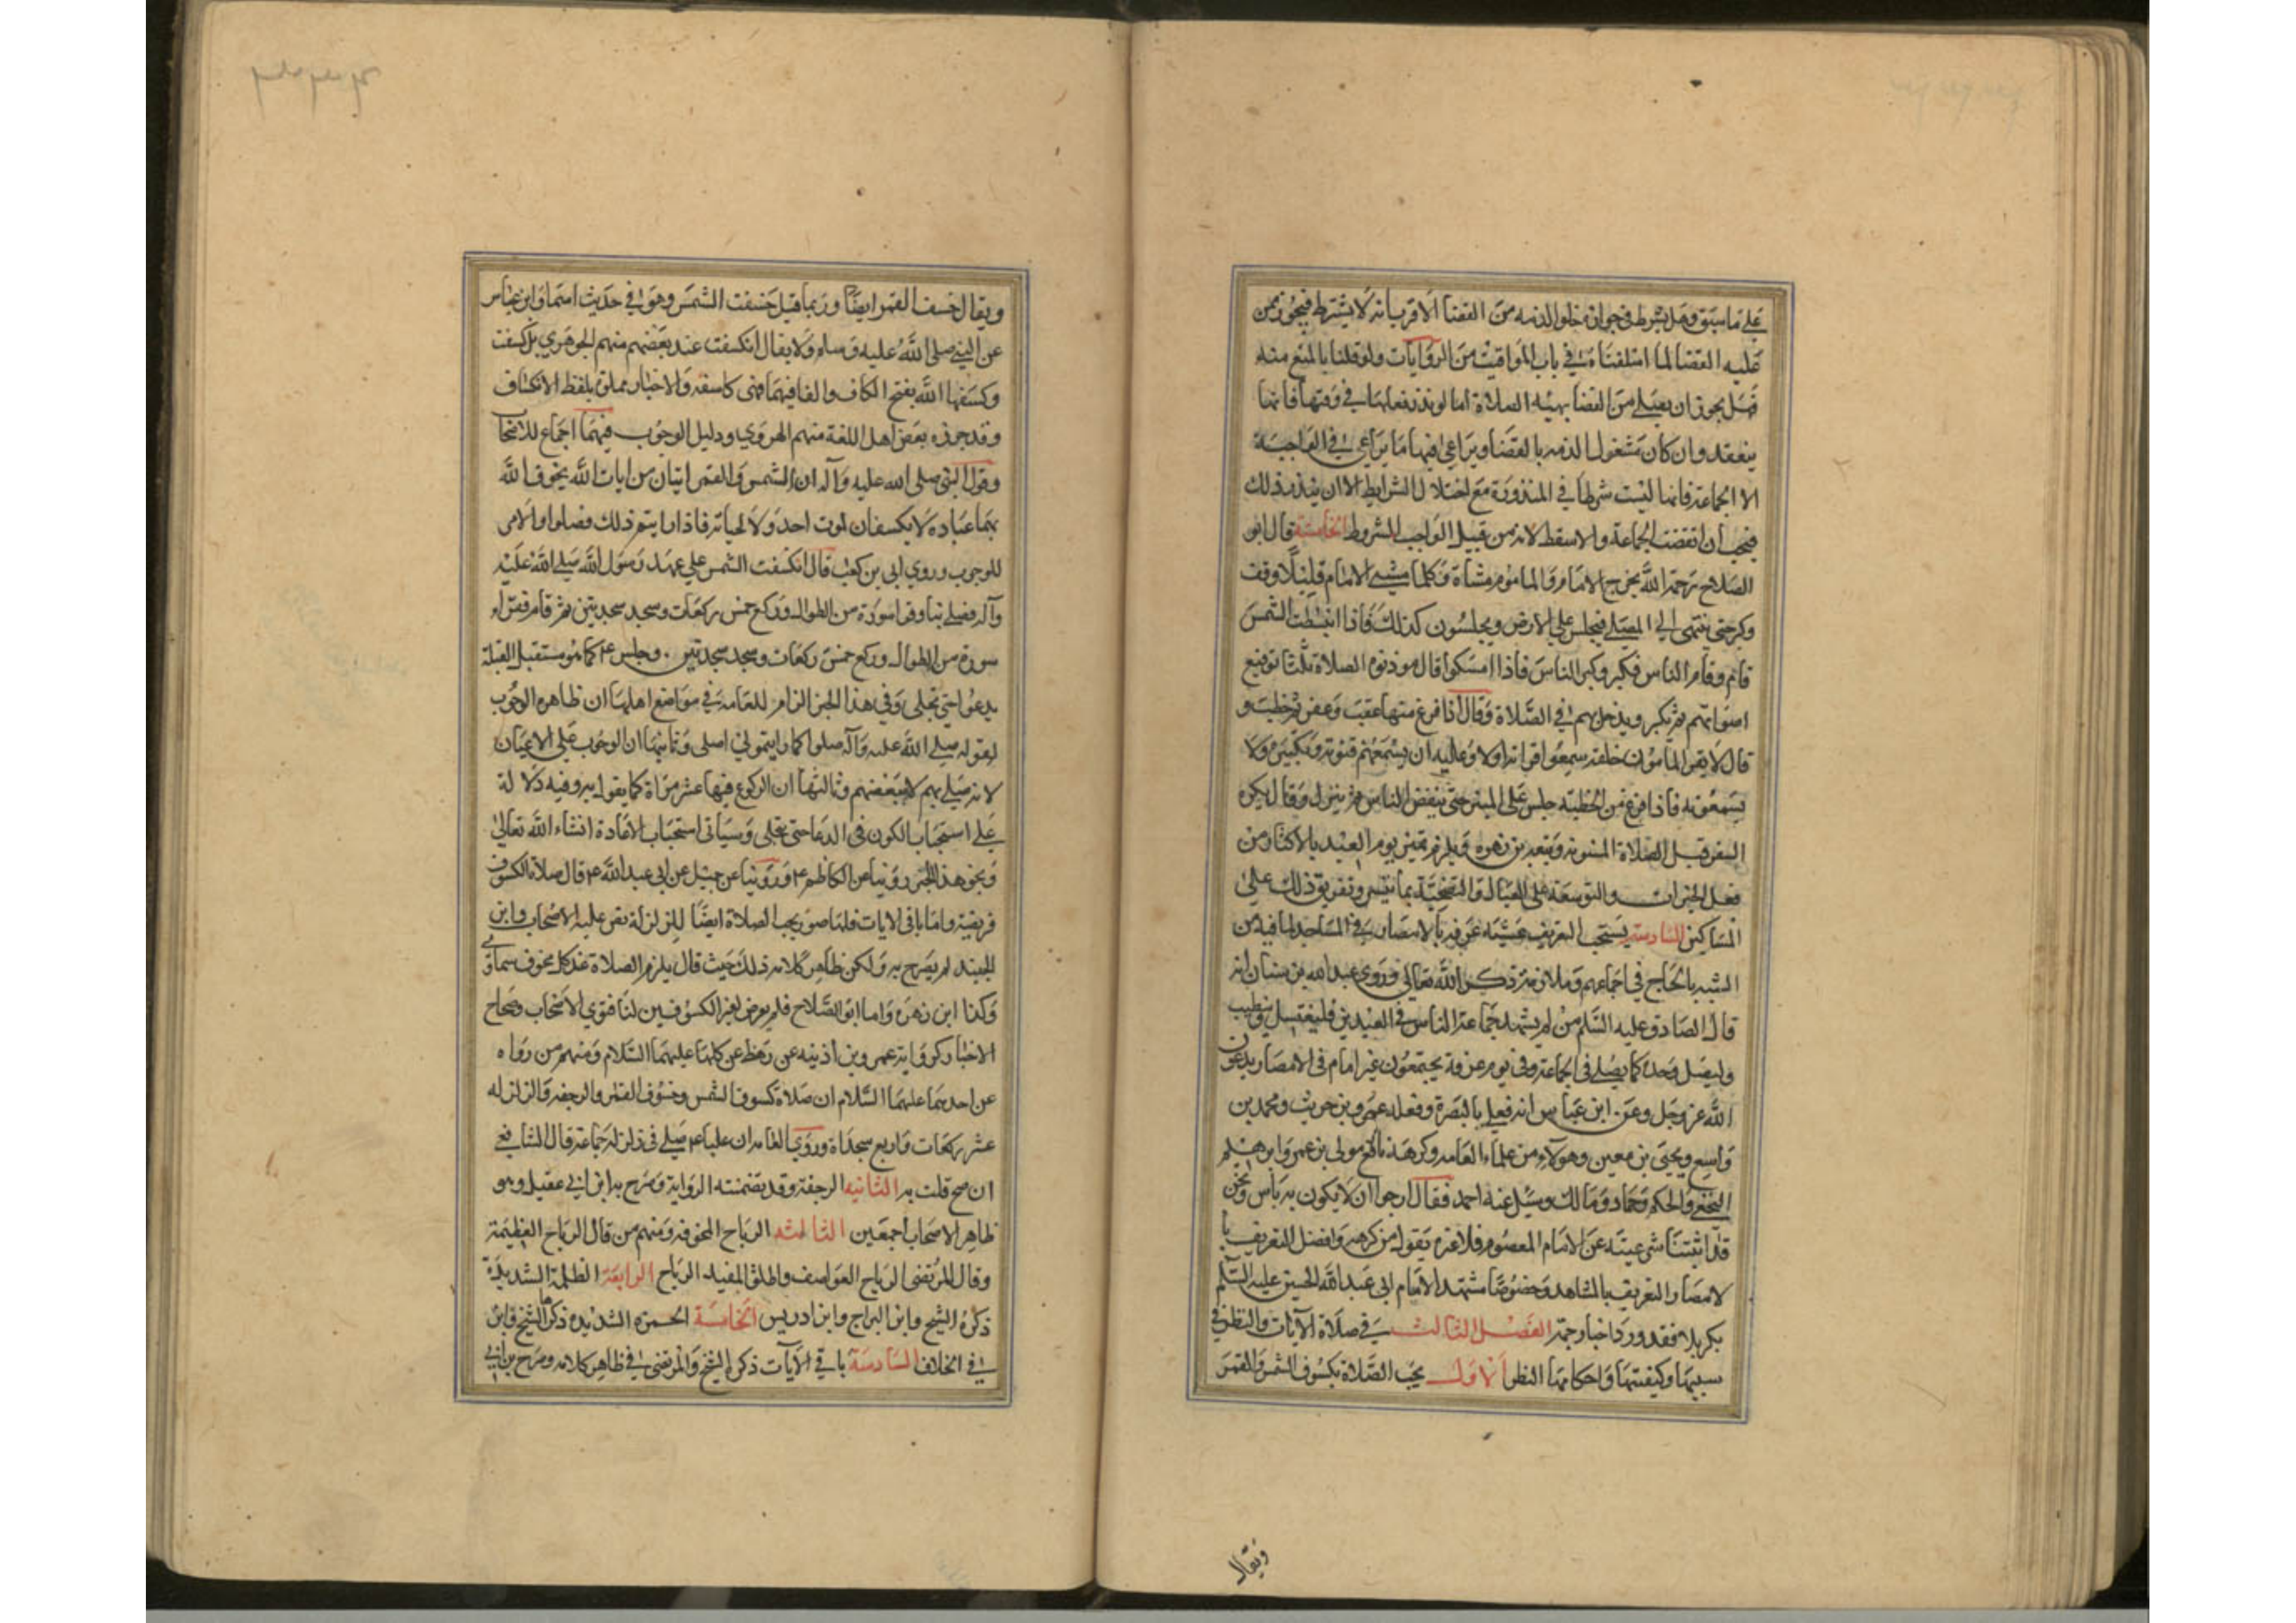 على ما سبق وهل يشترط في جوازه خلو الذمه من القضا الاقرب انه لا يشترط فيجوز ممن
عليه القضا لما اسلفناه في باب المواقيت من الروايات ولو قلنا بالمنع منه
فهل يجوز ان يصلي من القضا بهيئه الصلاة اما لو نذر فعلها في وقتها فانها
ينعقد وان كان مشغول الذمه بالقضا ويراعى فيها ما يراعى في الواجبة
الا الجماعة فانها ليست شرطا في المنذورة مع اختلال الشرايط الا ان ينذر ذلك
فيجب ان انعقدت الجماعة والا سقط لانه من قبيل الواجب المشروط الخامسة قال ابو
الصلاح رحمة الله يخرج الامام والماموم مشاة وكلما مشى الامام قليلا وقف
وكبر حتى ينتهى الى المصلى فيجلس على الارض ويجلسون كذلك فاذا انبسطت الشمس
قام وقام الناس فكبر وكبر الناس فاذا امسكوا قال موذنوه الصلاة ثلثا ترفع
اصواتهم ثم يكبر ويدخل بهم في الصلاة وقال اذا فرغ منها عقب وعفر ثم خطب و
قال لا يقرا المامون خلفه سمعوا قراته اولا وعليه ان يسمعهم قنوته وتكبيره ولا
يسمعونه فاذا فرغ من الخطبه جلس على المنبر حتى ينفض الناس ثم ينزل وقال يكره
السفر قبل الصلاة المسنونه وتبعه بن زهره ويلزم تميز يوم العيد بالاكثار من
فعل الخيرات والتوسعة على العيال والتضحية بما تيسر وتفريق ذلك على
المساكين السادسة يستحب التعريف عشيه عرفه بالامصار في المساجد لما فيه من
الشبه بالحاج في اجتماعهم وملازمة ذكر الله تعالى وروى عبد الله بن سنان انه
قال الصادق عليه السلم من لم يشهد جماعة الناس في العيدين فليغتسل وليتطيب
وليصل وحده كما يصلى في الجماعة وفي يوم عرفة يجتمعون بغير امام في الامصار يدعون
الله عز وجل وعن ابن عباس انه فعله بالبصرة وفعله عمرو بن حريث ومحمد بن
واسع ويحيى بن معين وهولآء من علماء العامه وكرهه نافع مولى بن عمر وابرهيم
النخعي والحكم وحماد ومالك وسئل عنه احمد فقال ارجوا ان لا يكون به باس ونحن
قد اثبتنا شرعيته عن الامام المعصوم فلا عبره بقول من كرهه وافضل التعريف با
لامصار التعريف بالمشاهد وخصوصا مشهد الامام ابي عبد الله الحسين عليه السلم
بكربلا فقد ورد اخبار جمة الفصل الثالث في صلاة الآيات والنظر في
سببها وكيفيتها واحكامها النظر الاول يجب الصلاة بكسوف الشمس والقمر
ويقال
ويقال خسف القمر ايضا وربما قيل خسفت الشمس وهو في حديث اسماء وابن عباس
عن النبي صلى الله عليه وسلم ولا يقال انكسفت عند بعضهم منهم الجوهري بل كسفت
وكسفها الله بفتح الكاف والفا فيهما فهى كاسفه والاخبار مملوة بلفظ الانكساف
وقد جوزه بعض اهل اللغة منهم الهروي ودليل الوجوب فيهما اجماع للاصحاب
وقول النبي صلى الله عليه وآله ان الشمس والقمر ايتان من ايات الله يخوف الله
بهما عباده لا يكسفان لموت احد ولا لحياته فاذا رايتم ذلك فصلوا والامر
للوجوب وروي ابي بن كعب قال انكسفت الشمس على عهد رسول الله صلى الله عليه
وآله فصلى بنا وقرا سورة من الطوال وركع خمس ركعات وسجد سجدتين ثم قام فقراء
سورة من الطوال وركع خمس ركعات وسجد سجدتين . وجلس ع كما هو مستقبل القبلة
يدعوا حتى تجلى وفي هذا الخبر الزام للعامه في مواضع اهلها ان ظاهره الوجوب
لقوله صلى الله عليه وآله صلوا كما رايتموني اصلى وثانيها ان الوجوب على الاعيان
لانه صلى بهم لا ببعضهم وثالثها ان الركوع فيها عشر مراة كما يقوله به وفيه دلالة
على استحباب الكون في الدعا حتى تجلى وسياتي استحباب الاعادة انشاء الله تعالى
ونحو هذا الخبر روينا عن الكاظم ع وروينا عن جميل عن ابى عبد الله ع قال صلاة الكسوف
فريضة واما باقى الايات فلها صور يجب الصلاة ايضا للزلزلة نص عليه الاصحاب وابن
الجنيد لم يصرح به ولكن ظاهر كلامه ذلك حيث قال يلزم الصلاة عند كل مخوف سماوي
وكذا ابن زهره واما ابو الصلاح فلم يعرض لغير الكسوفين لنا فتوي الاصحاب وصحاح
الاخبار كرواية عمر بن اذينه عن رهط عن كليهما عليهما السلام ومنهم من رواه
عن احدهما عليهما السلام ان صلاة كسوف الشمس وخسوف القمر والرجفه والزلزله
عشر ركعات واربع سجداة وروي العامه ان عليا ع صلى في زلزله جماعة قال الشافعي
ان صح قلت به الثانيه الرجفة وقد تضمنته الرواية وصرح به ابن ابي عقيل وهو
ظاهر الاصحاب اجمعين الثالثه الرياح المخوفه ومنهم من قال الرياح العظيمة
وقال المرتضى الرياح العواصف واطلق المفيد الرياح الرابعة الظلمة الشديدة
ذكره الشيخ وابن البراج وابن ادريس الخامسة الحمره الشديده ذكرها الشيخ وابن
في الخلاف السادسة باقي الآيات ذكره الشيخ والمرتضى في ظاهر كلامه وصرح بن ابي